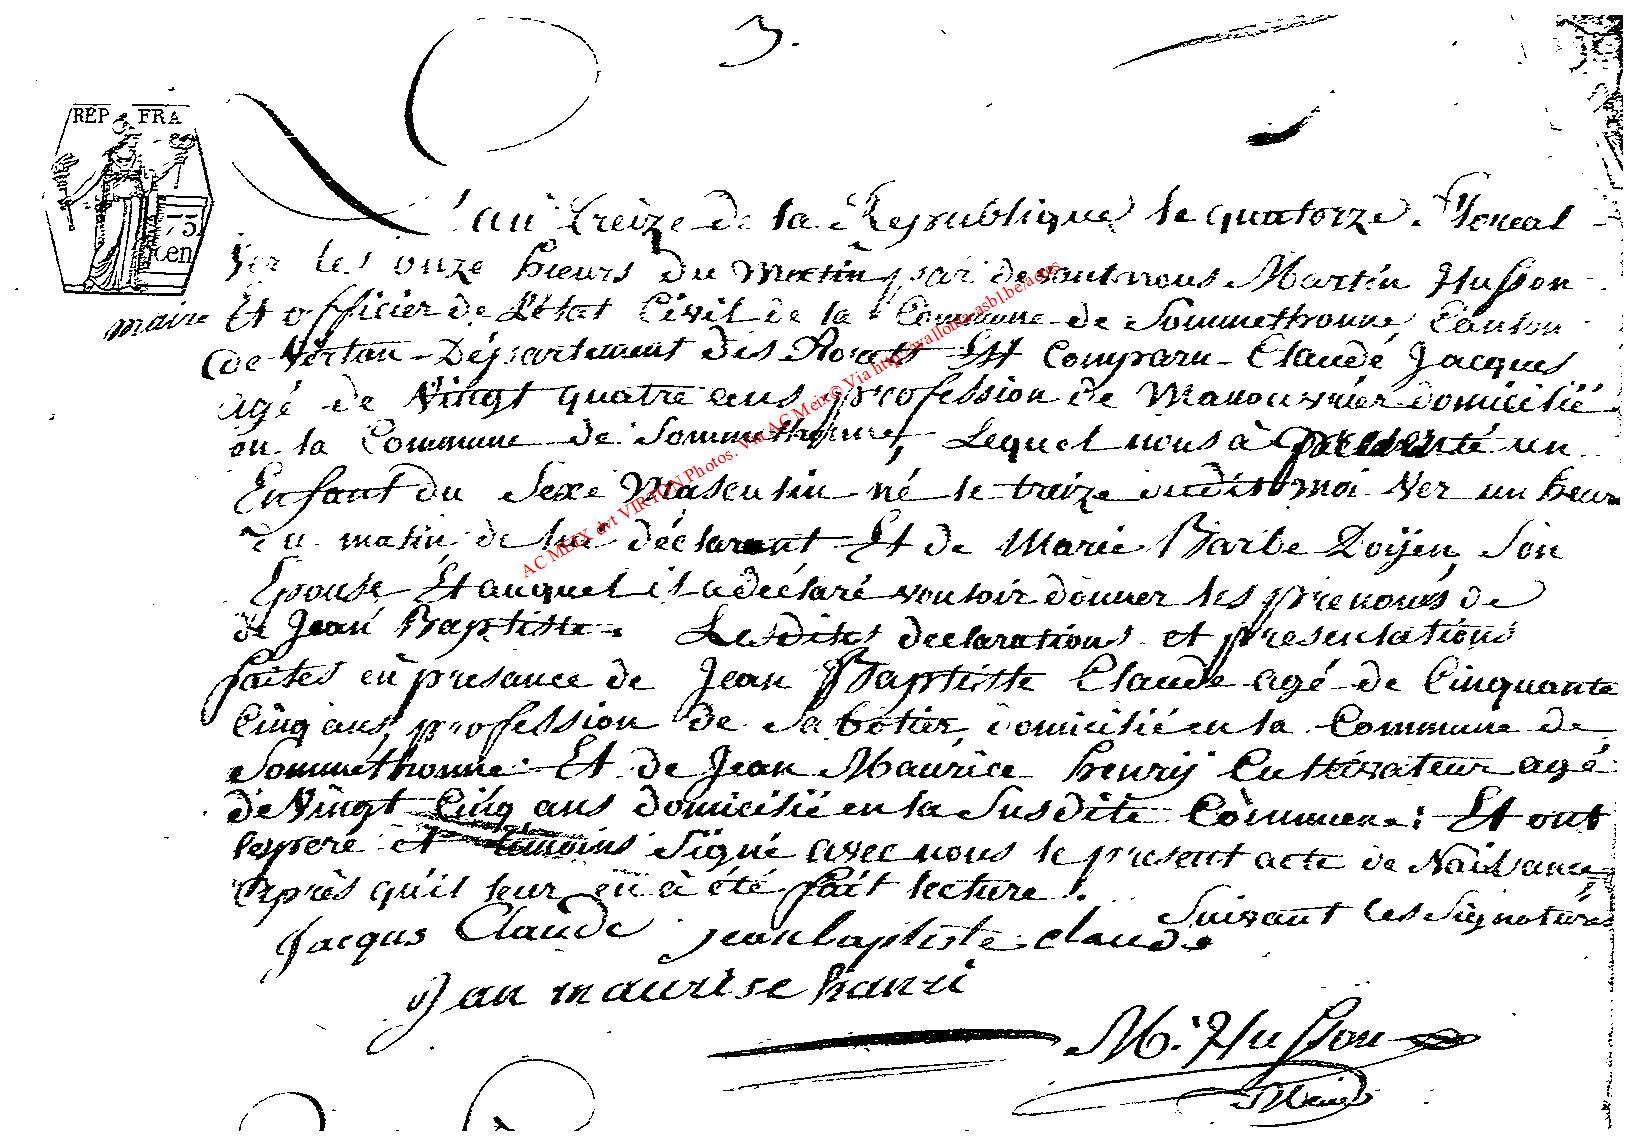 3.
REP FRA
75
Cen
L'an treize de la Republique le quatorze floreal
ver les onze heurs du matin par devant nous Martin Husson
maire Et officier de L'état Civil de la Commune de Sommethonne Canton
de Virton Département des Forets Est Comparu Claude Jacques
agé de Vingt quatre ans profession de Manouvrier domicilié
en la Commune de Sommethonne, Lequel nous à presenté un
Enfant du Sexe Masculin né le treize dudit moi Ver un heur
du matin de lui déclarant Et de Marie Barbe Doÿen, Son
Epouse Et auquel il a déclaré vouloir donner les prenoms de
de Jean Baptiste. Lesdites declarations et presentations
faites en presance de Jean Baptiste Claude agé de Cinquante
Cinq ans, profession de Sabotier, domicilié en la Commune de
Sommethonne Et de Jean Maurice henrÿ Cultivateur agé
de Vingt Cinq ans domicilié en la Susdite Commune: Et ont
les pere et témoins Signé avec nous le present acte de Naissance,
après qu'il leur en à été fait lecture.
Suivant les Signatures
Jacqus Claude jean baptiste claude
jan maurise hanri
M. Husson
Maire
AC MEIX dvt VIRTON Photos. Via AC Meix © Via http://wallonia.asbl.be/actes